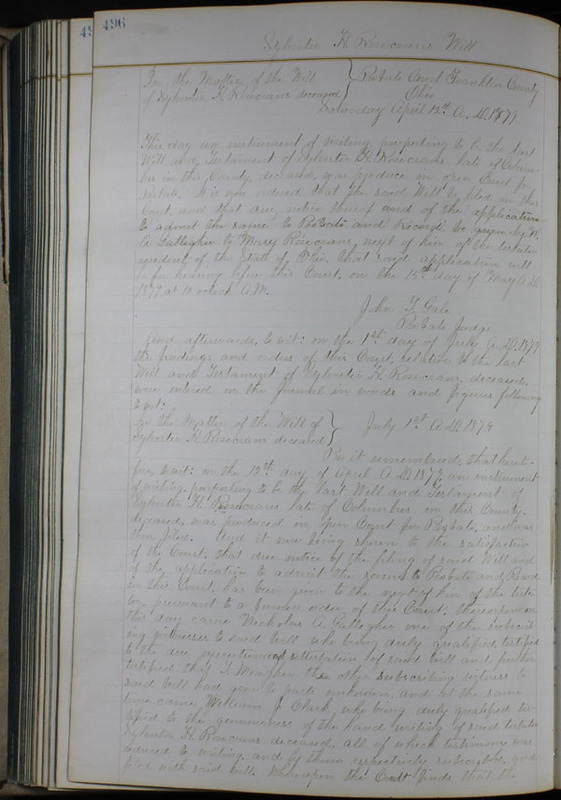 496
Sylvester H. Rosecrans Will
In the Matter of the Will } Probate Court Franklin County
of Sylvester H. Rosecrans deceased } Ohio
Saturday April 12th A.D. 1879
This day an instrument of writing, purporting to be the last
Will and Testament of Sylvester H. Rosecrans, late of Colum-
bus in this County, deceased, was produced in open Court for
Probate. It is now ordered that the said Will be filed in this
Court and that due notice thereof and of the application
to admit the same to Probate and Record be given by N.
A. Gallagher to Mary Rosecrans, next of kin of the testator
resident of the State of Ohio, that said application will
be for hearing before this Court, on the 15th day of May A.D.
1879 at 10 o'clock A.M.
John T. Gale
Probate Judge
And afterwards, to wit: on the 1st day of July A.D. 1879
the findings and orders of this Court, relative to the last
Will and Testament of Sylvester H. Rosecrans, deceased,
were entered on the Journal in words and figures following
to wit:
In the Matter of the Will of } July 1st A.D. 1879
Sylvester H. Rosecrans deceased }
Be it remembered, that hereto-
fore, to wit: on the 12th day of April A.D. 1879, an instrument
of writing, purporting to be the last Will and Testament of
Sylvester H. Rosecrans late of Columbus in this County,
deceased, was produced in open Court for Probate, and was
then filed. And it now being shown to the satisfaction
of the Court, that due notice of the filing of said Will and
of the application to admit the same to Probate and Record
in this Court, has been given to the next of kin of the testa-
tor, pursuant to a former order of this Court, thereupon on
this day came Nicholas A. Gallagher one of the subscrib-
ing witnesses to said will who being duly qualified, testified
to the due execution and attestation of said will and further
testified that T. Meagher the other subscribing witness to
said Will had gone to parts unknown, and at the same
time came William J. Clark, who being duly qualified tes-
tified to the genuineness of the hand writing of said testator
Sylvester H. Rosecrans deceased, all of which testimony was
reduced to writing, and by them respectively subscribed, and
filed with said will. Whereupon the Court finds that the